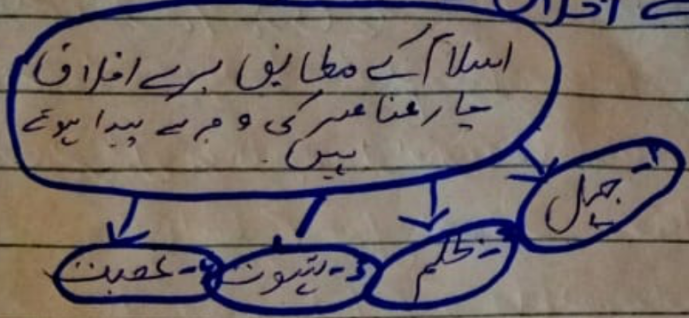 اسلام کے مطابق برے اخلاق
چار عناصر کی وجہ سے پیدا ہوتے
ہیں.
1- جہل
2- ظلم
3- شہوت
4- غضب